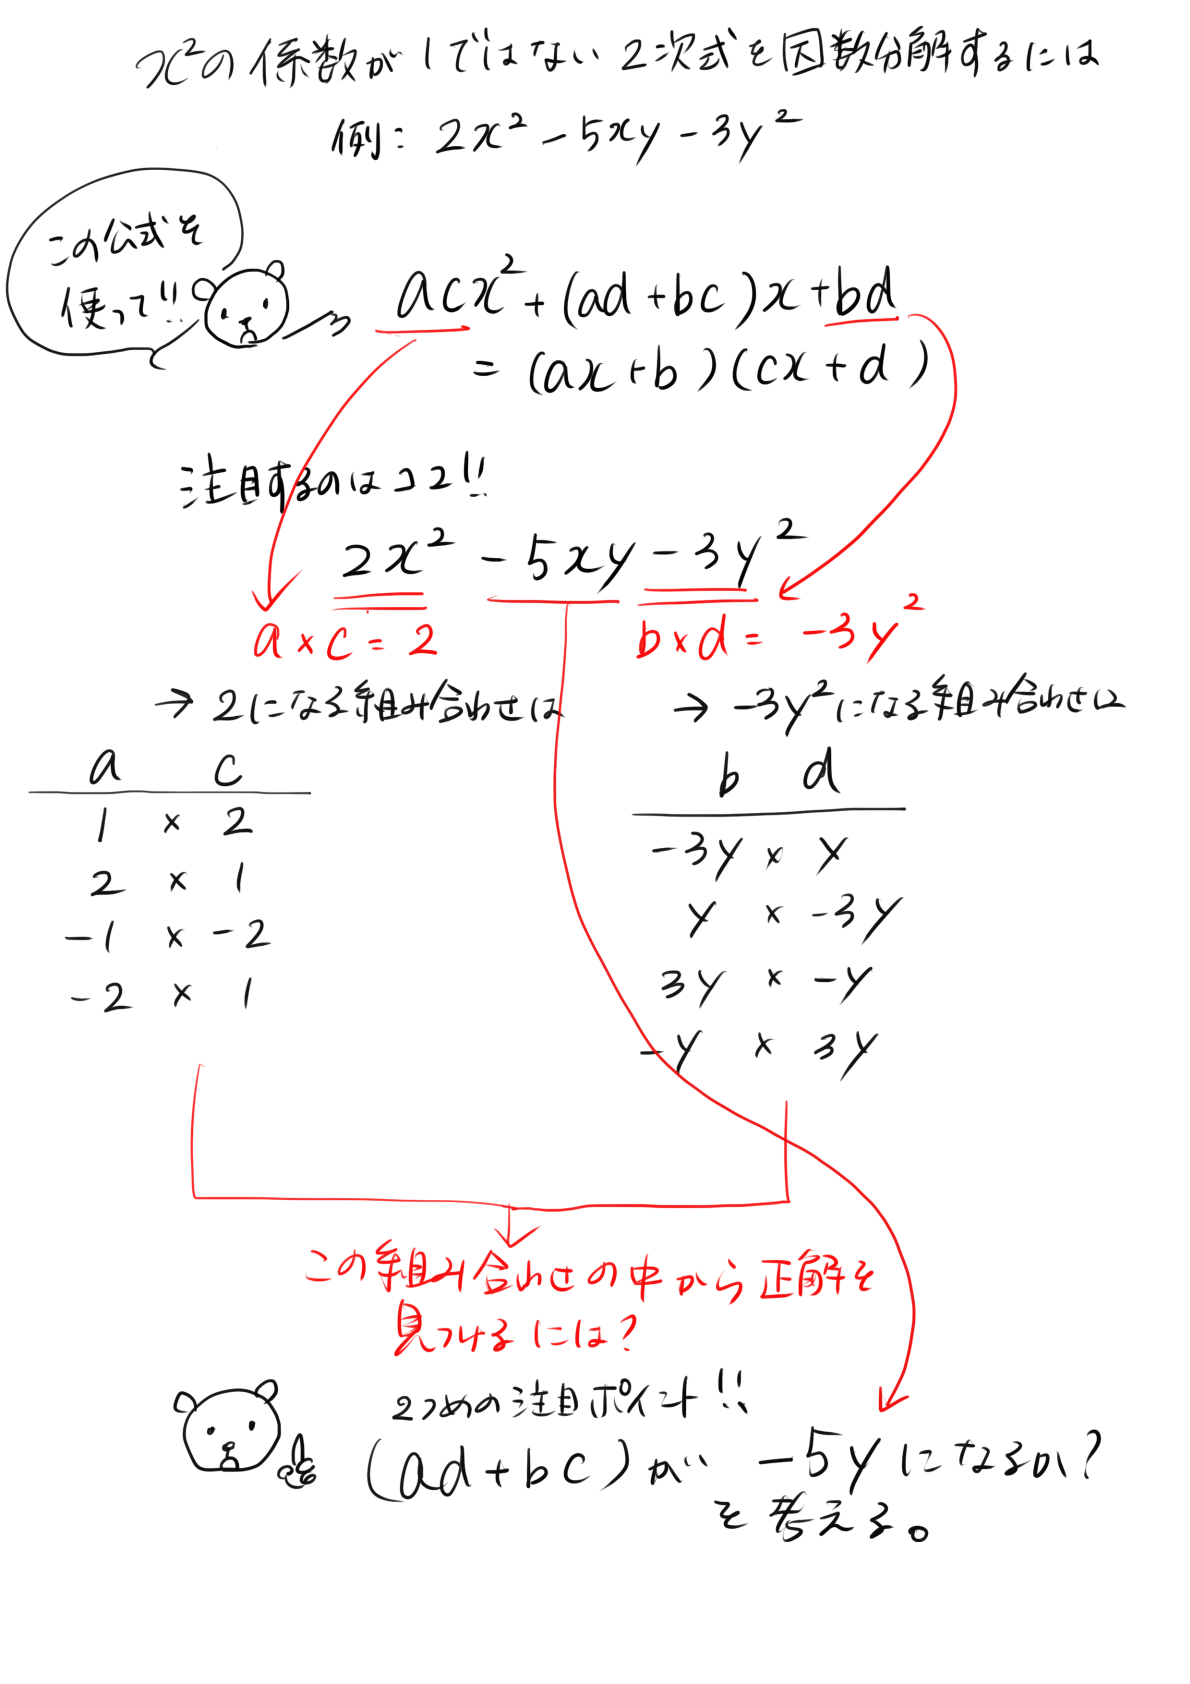 x²の係数が1ではない2次式を因数分解するには
例: 2x² - 5xy - 3y²
この公式を
使って!!
acx² + (ad + bc)x + bd
= (ax + b)(cx + d)
注目するのはココ!!
2x² - 5xy - 3y²
a × c = 2
b × d = -3y²
→ 2になる組み合わせは
→ -3y²になる組み合わせは
a c
1 × 2
2 × 1
-1 × -2
-2 × 1
b d
-3y × y
y × -3y
3y × -y
-y × 3y
この組み合わせの中から正解を
見つけるには?
2つめの注目ポイント!!
(ad + bc)が -5yになるか?
を考える。